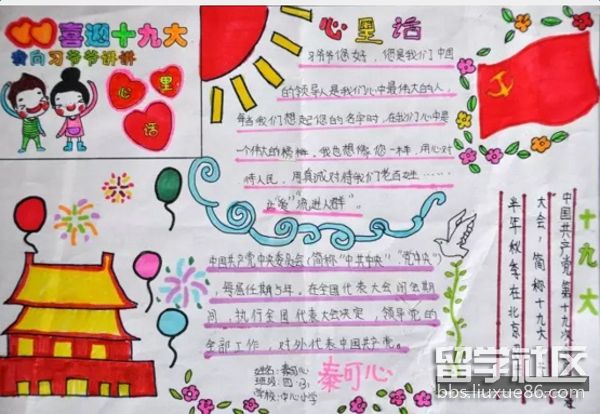 喜迎十九大
我向习爷爷讲讲
心里话
心里话
习爷爷您好，您是我们中国
的领导人是我们心中最伟大的人，
每当我们想起您的名字时，在我们心中是
一个伟大的榜样，我也想像您一样，用心对
待人民，用真诚对待我们老百姓……
让"爱"流进人群"。
中国共产党中央委员会（简称"中共中央"、"党中央"）
，每届任期5年，在全国代表大会闭会期
间，执行全国代表大会决定，领导党的
全部工作，对外代表中国共产党。
姓名：秦可心
班级：四（3）
学校：中心小学
秦可心
十九大
中国共产党第十九次
大会，简称十九大
半年秋季在北京
留学社区
bbs.liuxue86.com